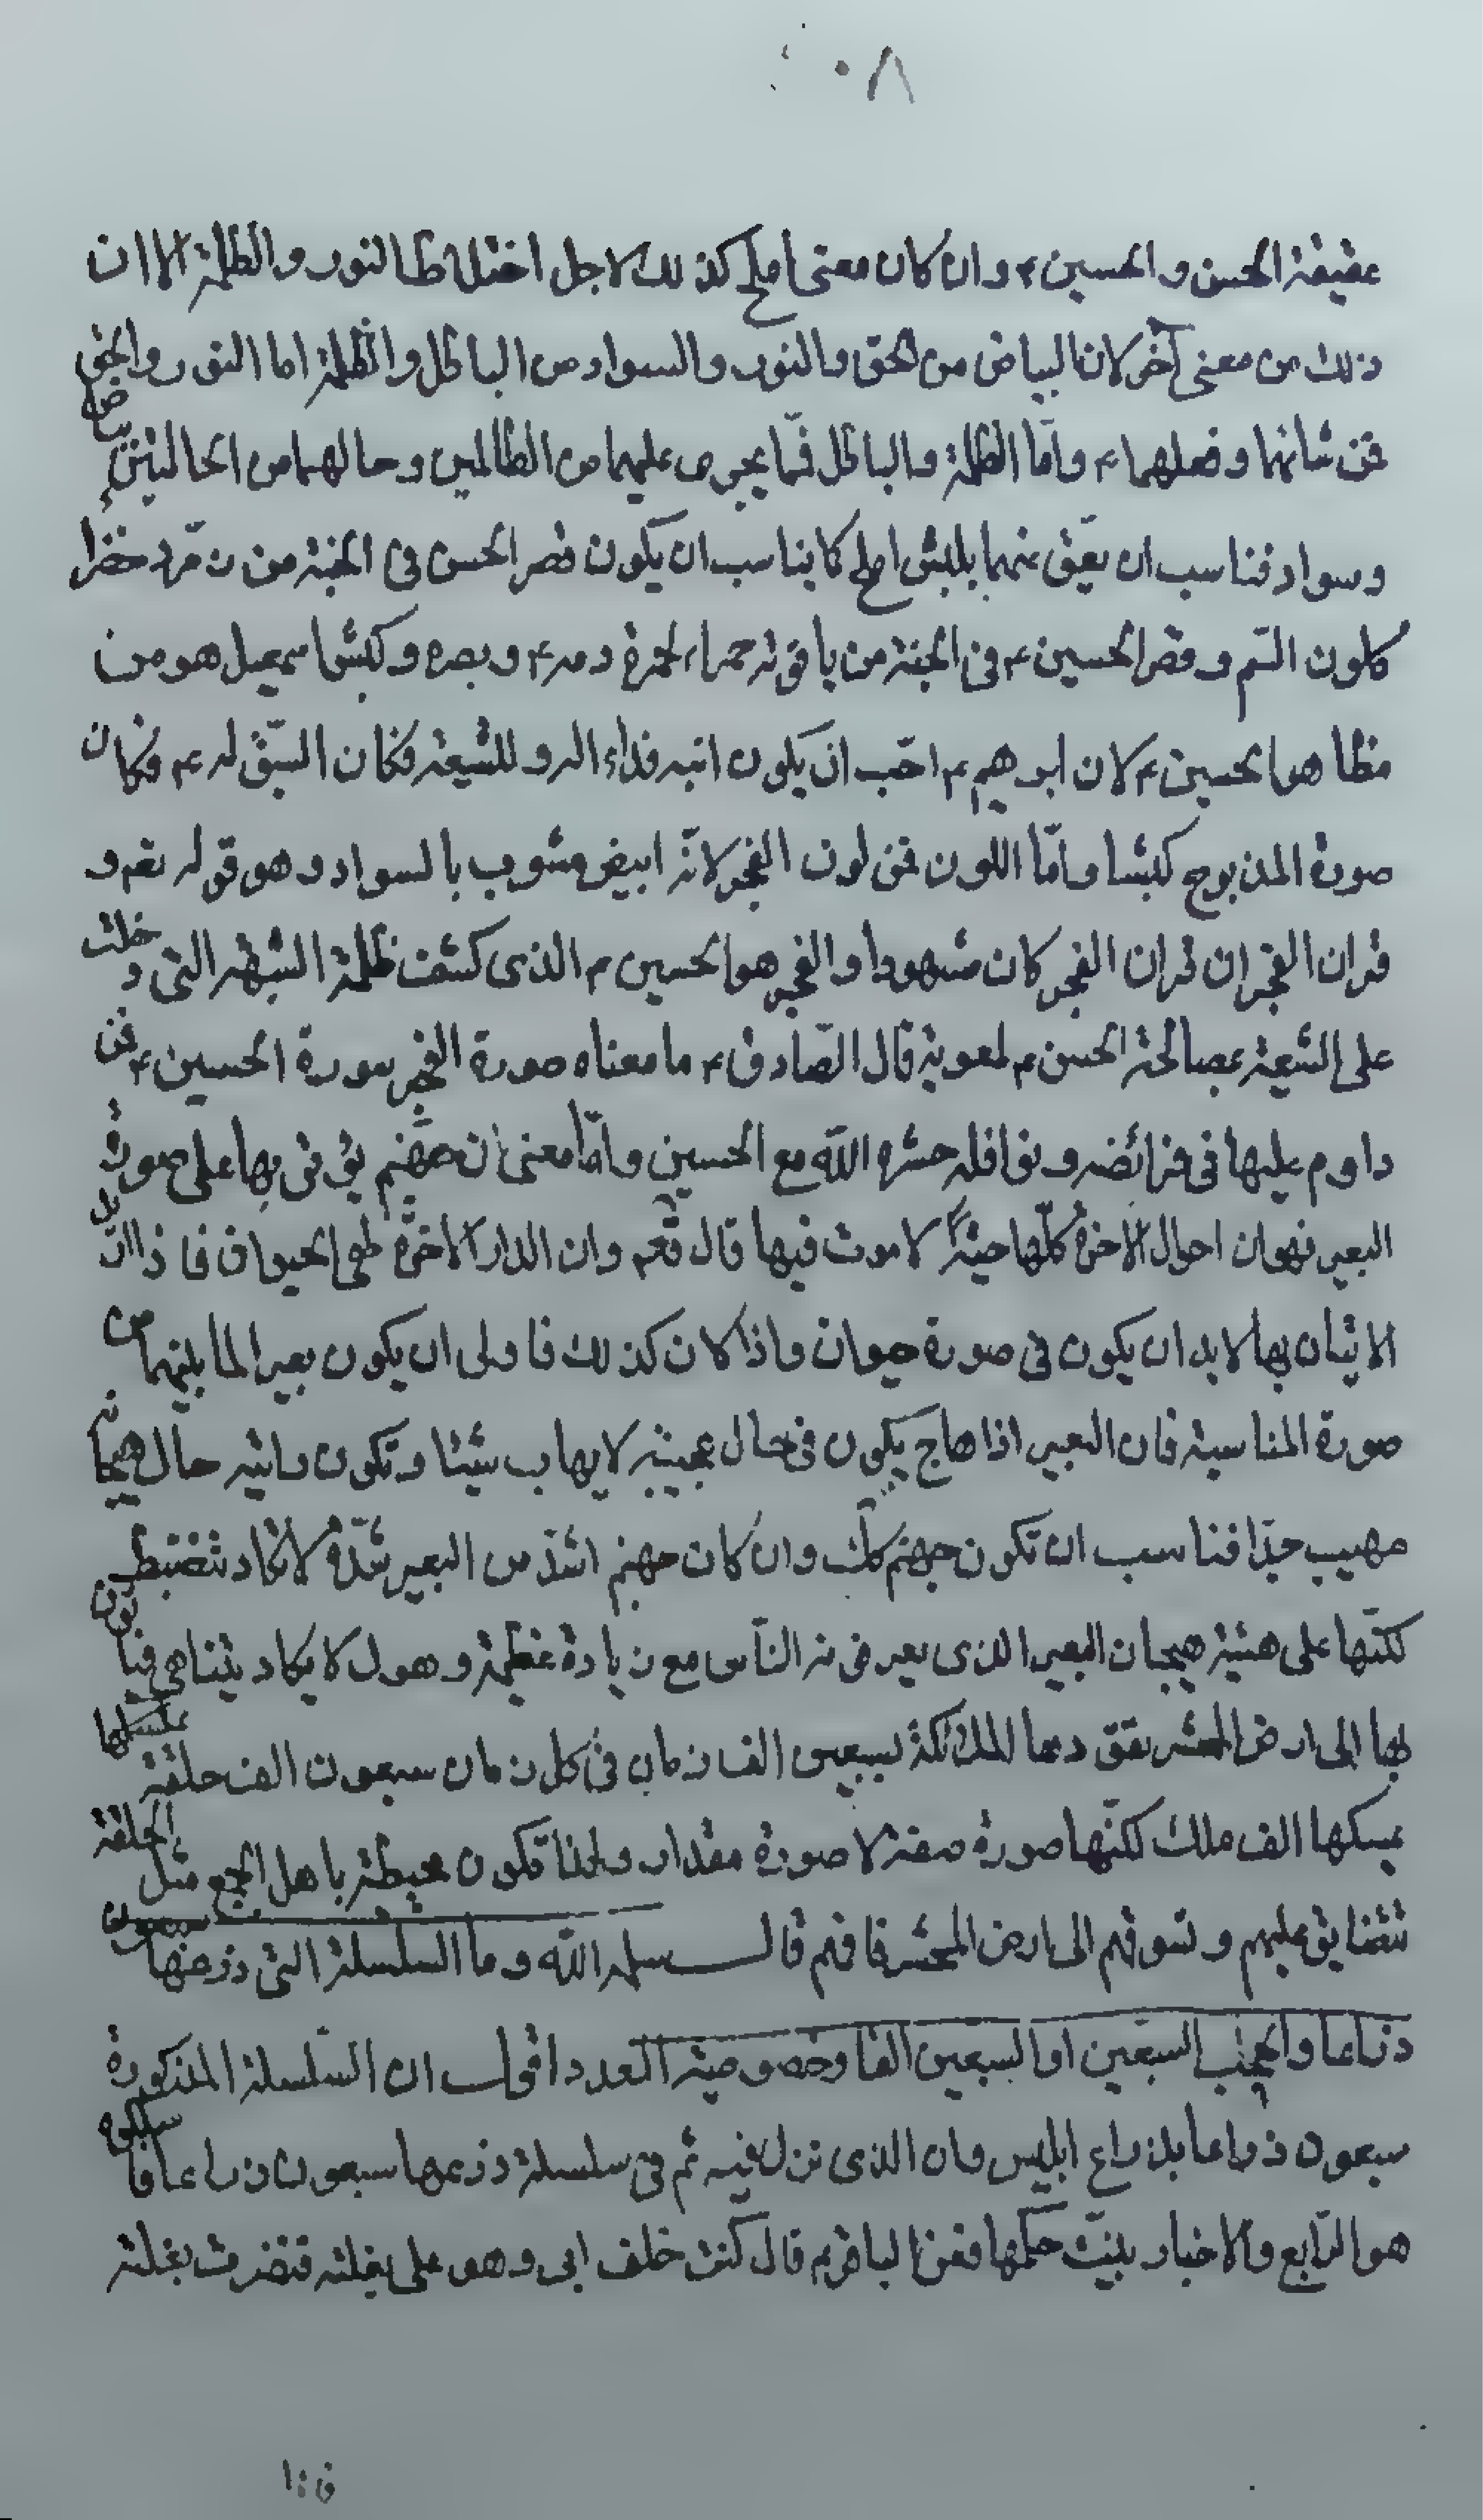 ٠٨
عقيقة الحسن والحسين ع وان كان معنى املح كذلك لاجل اختلاط النور والظلمة الا ان
ذلك من معنى آخر لان البياض من الحق والنور والسواد من الباطل والظلمة اما النور والحق
فمن شانهما وفعلهما ع وامّا الظلمة والباطل فما يجرى عليهما من الظالمين وحالهما من الحالتين بياض
وسواد فناسب ان يعقّ عنهما بكبش املح كما يناسب ان يكون قصر الحسن فى الجنة من زمرّد خضراء
كلون السّم وقصر الحسين ع فى الجنة من ياقوتة حمراء لحمرة دمه ع وبصره وكبش اسمعيل هو من
مظاهر الحسين ع لان ابرهيم ع احّب ان يكون ابنه فداء له وللشيعة فكان السّبق له ع فكان
صورة المذبوح كبشا وامّا اللون فمن لون الفجر لانّه ابيض مشوب بالسواد وهو قوله تعم و
قران الفجر ان قران الفجر كان مشهودا والفجر هو الحسين ع الذى كشف ظلمة الشبهة التى دخلت
على الشيعة بمصالحة الحسن ع لمعوية قال الصّادق ع ما معناه صورة الفجر سورة الحسين ع فمن
داوم عليها فى فرائضه ونوافله حشره الله مع الحسين وامّا معنى ان جهنّم يؤتى بها على صورة
البعير فهو ان احوال الاخرة كلّها حيّة لا موت فيها قال تعم وان الدار الاخرة لهى الحيوان فاذا اريد
الاتيان بها لابد ان يكون فى صورة حيوان واذا كان كذلك فاولى ان يكون بعيرا لما بينهما من
صورة المناسبة فان البعير اذا هاج يكون فى حال عجيبة لا يهاب شيئا وتكون حال هيجانه
مهيب جدّا فناسب ان تكون جهنم كك وان كان جهنم اشدّ من البعير شدّة لا تكاد تنضبط
لكنّها على هيئة هيجان البعير الذى يعرفونه النّاس مع زيادة عظيمة وهول لا يكاد يتناهى فيأتون
بها الى ارض المحشر يقودها الملائكة بسبعين الف زمام فى كل زمام سبعون الف حلقة
يمسكها الف ملك لكنّها صورة صفة لا صورة مقدار ولهذا تكون محيطة باهل الجمع مثل الحلقة
تتضايق عليهم وتسوقهم الى ارض المحشر فافهم قال سلمه الله وما السلسلة التى ذرعها سبعون
ذراعا والحجب السبعين او السبعين الفا وخصوصية العدد اقول ان السّلسلة المذكورة
سبعون ذراعا بذراع ابليس وان الذى نزل فيه ثم فى سلسلة ذرعها سبعون ذراعا فاسلكوه
هو الرّابع والاخبار بيّنت حكمها فعن الباقر ع قال كنت خلف ابى وهو على بغلته فنفرت بغلته